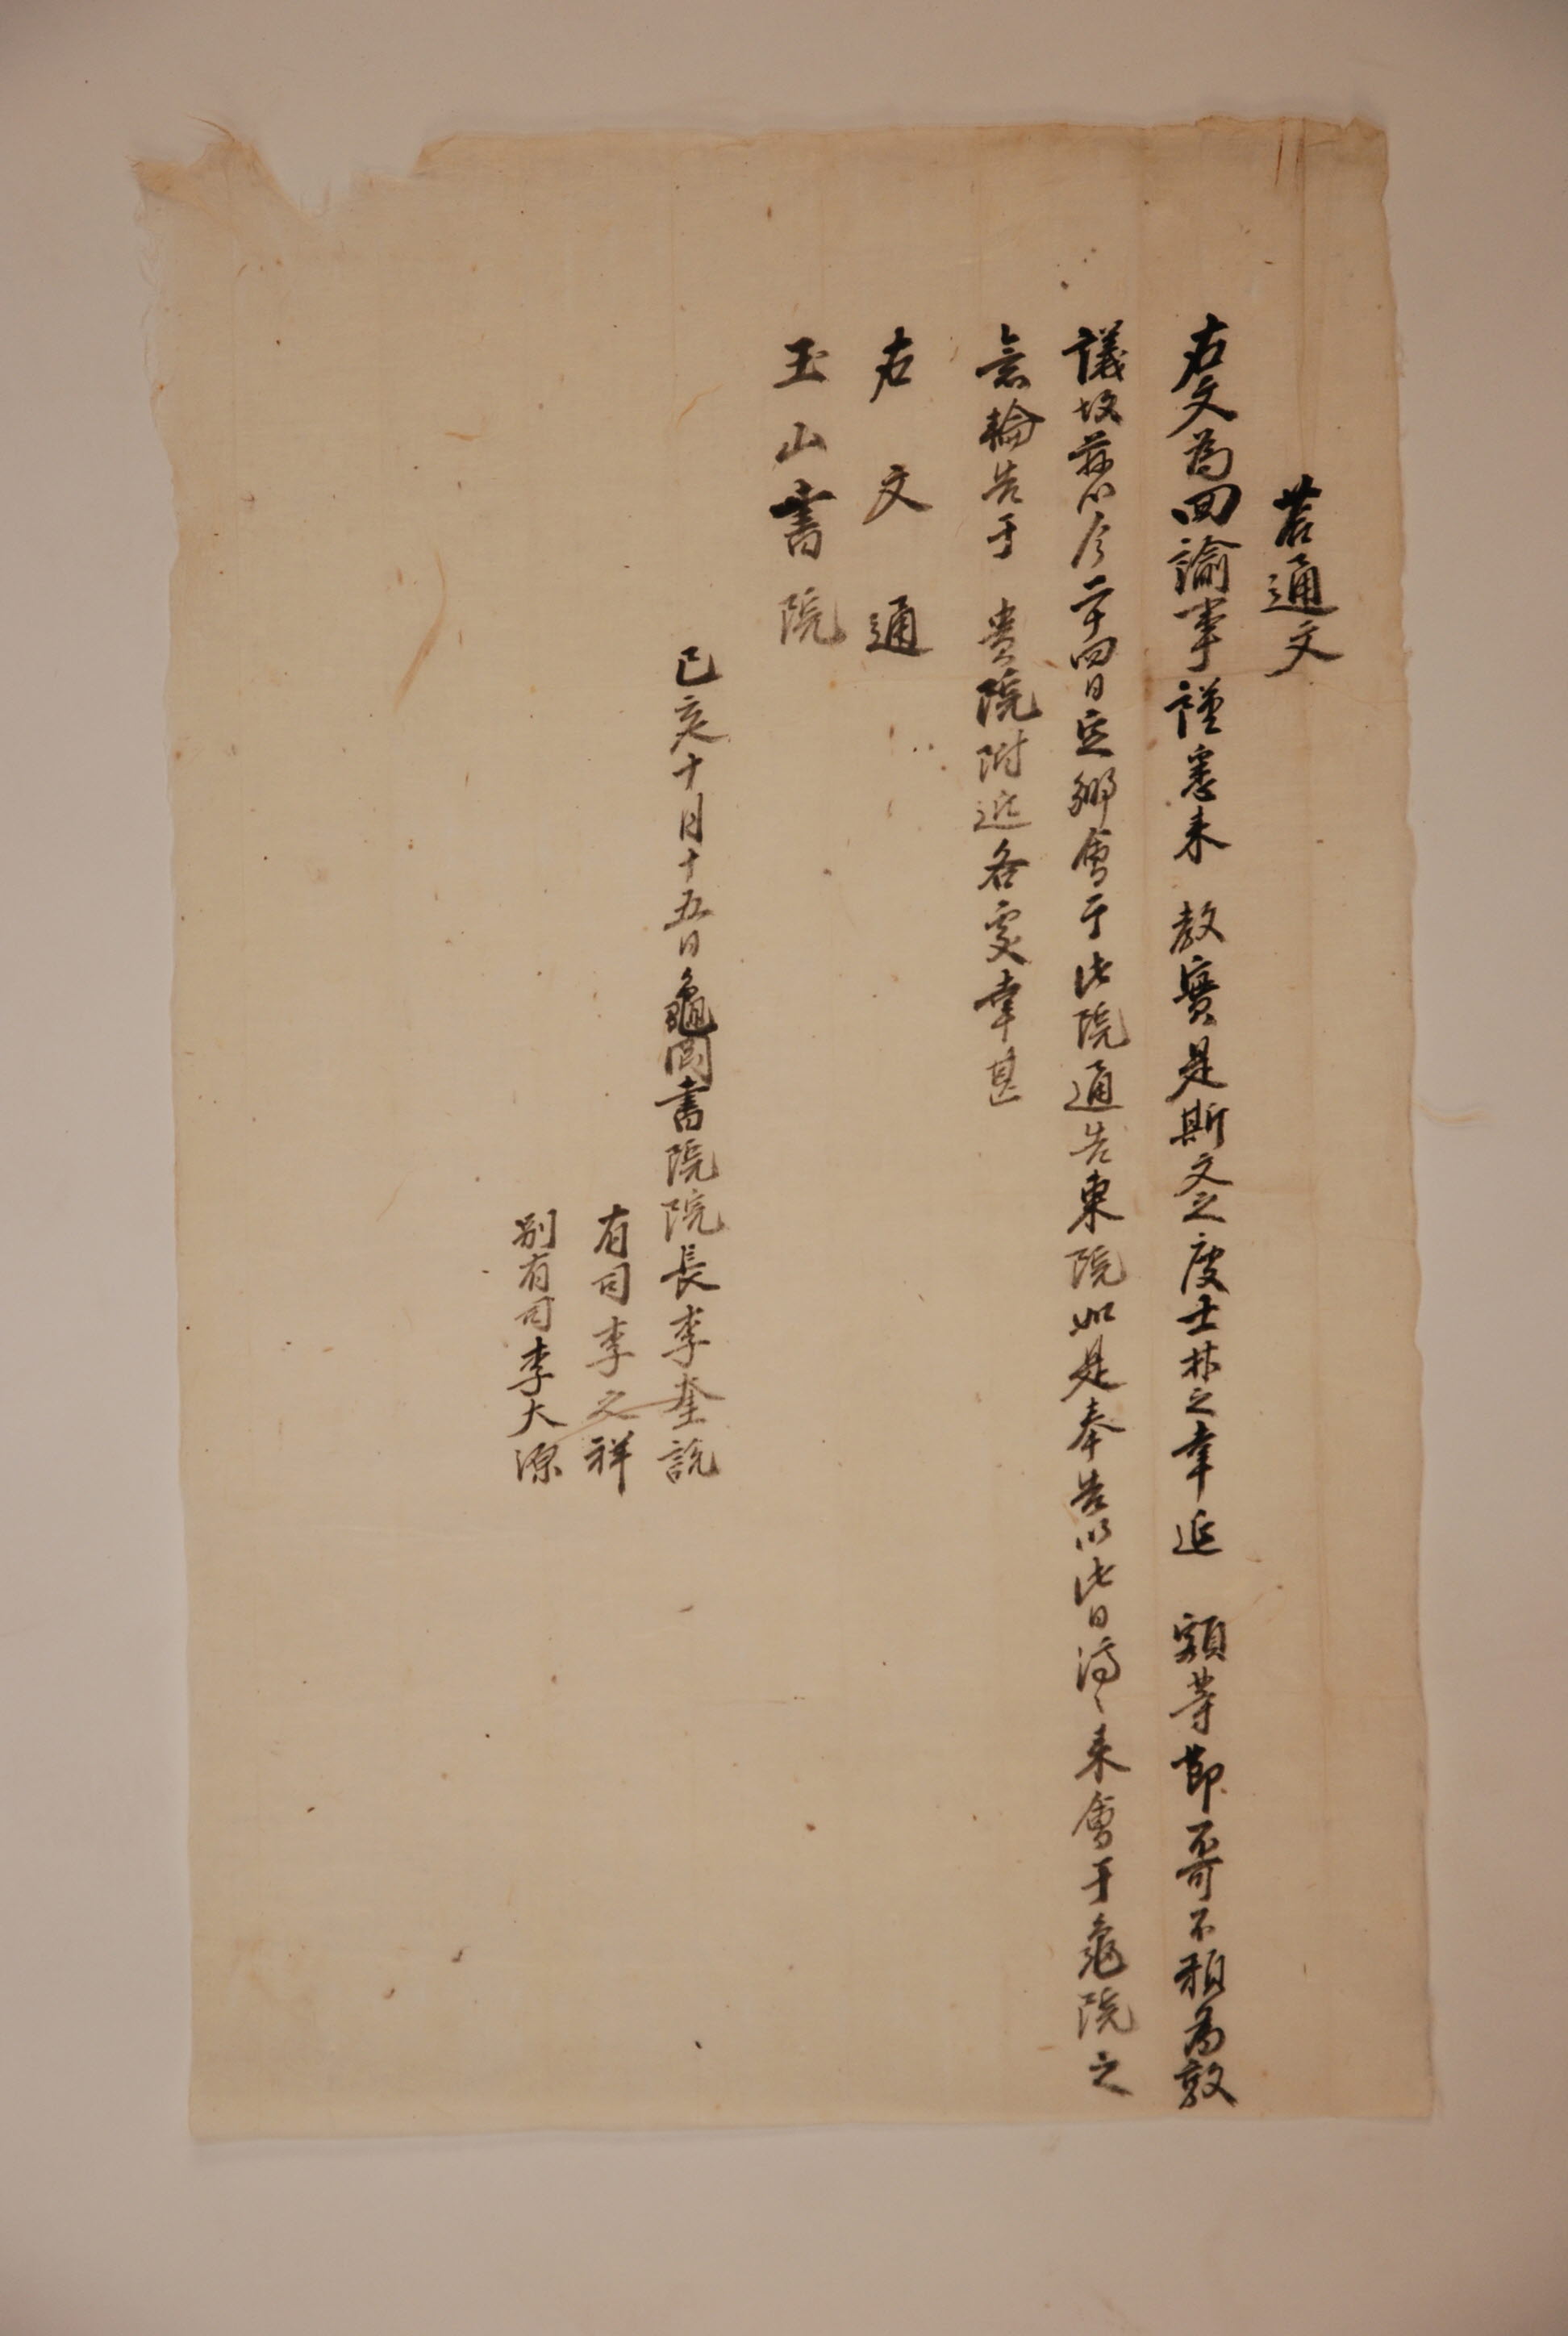 答通文
右文爲回諭事謹悉來 教實是斯文之慶士林之幸延 額等節不可不相爲敦
議故玆以今二十四日定鄕會于此院通告東院如是奉告以此日濟〻來會于龜院之
意輪告于 貴院附近各處幸甚
右文通
玉山書院
己亥十月十五日龜岡書院院長李奎說
有司李文祥
別有司李大源